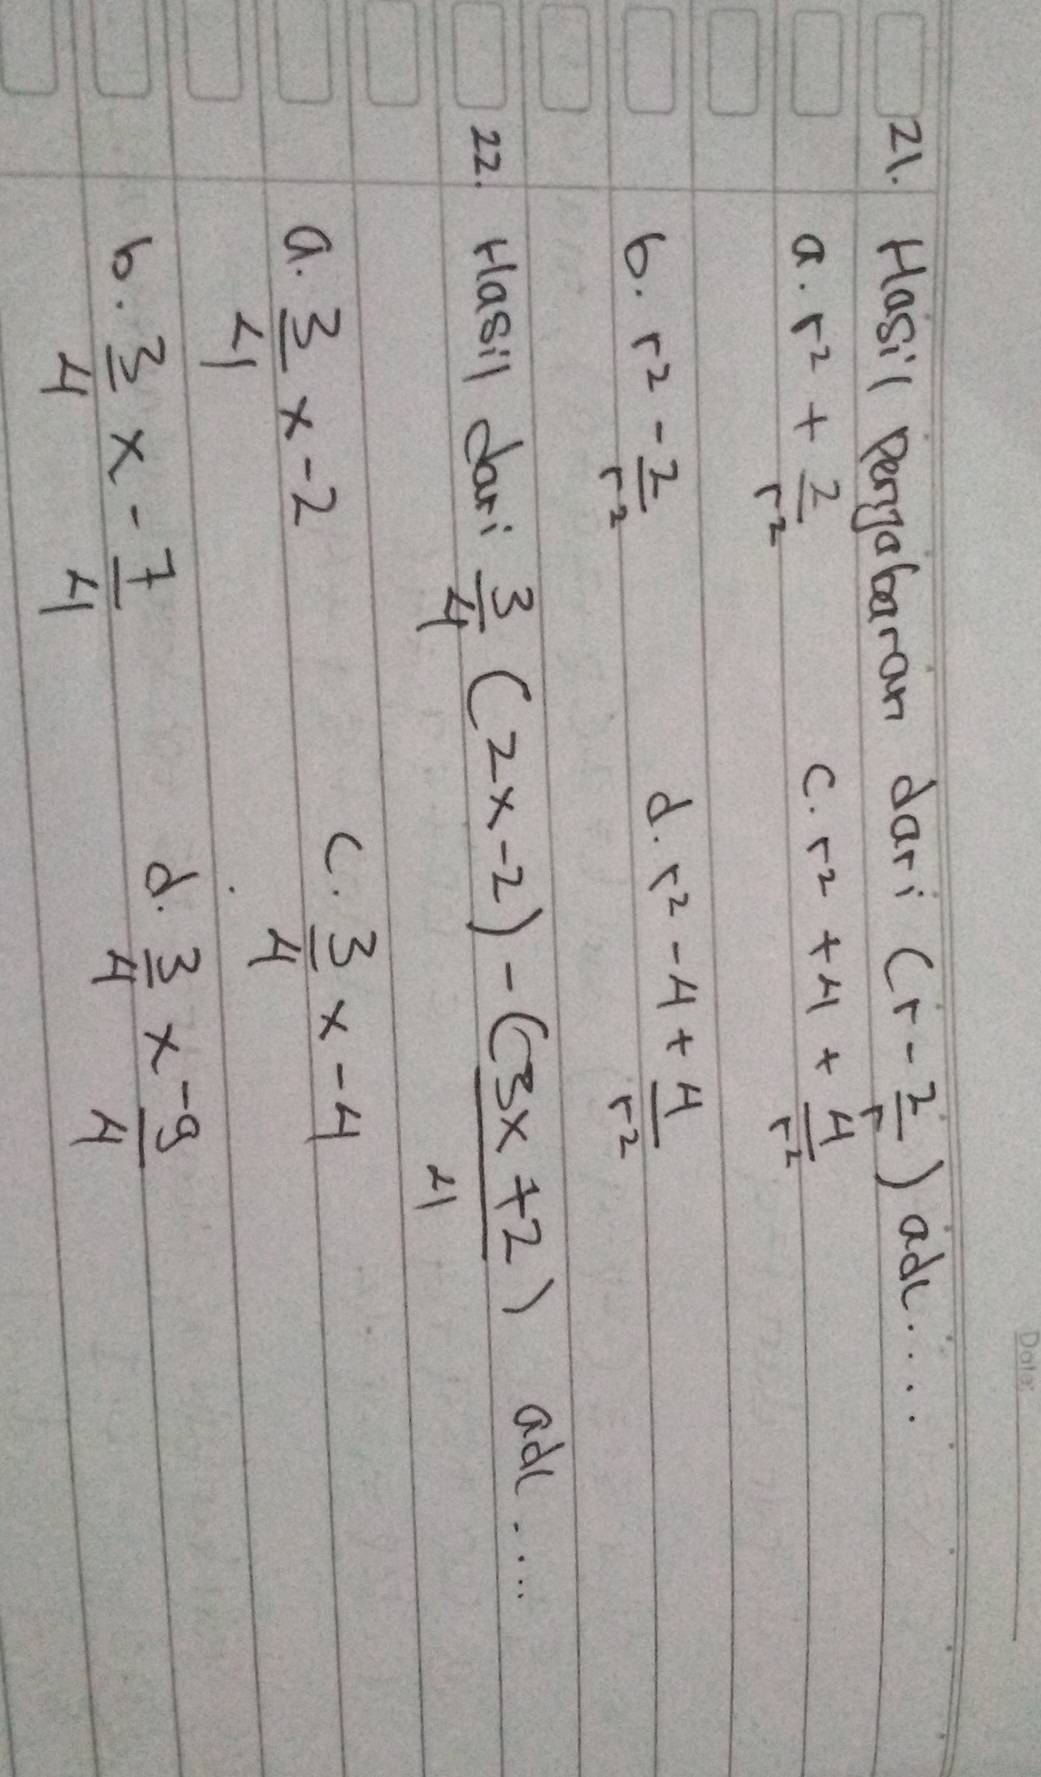 Date:
21. Hasil Penjabaran dari (r - 2/r) adl....
a. r² + 2/r² c. r² + 4 + 4/r²
b. r² - 2/r² d. r² - 4 + 4/r²
22. Hasil dari 3/4 (2x - 2) - (3x + 2)/4 adl....
a. 3/4 x - 2 c. 3/4 x - 4
b. 3/4 x - 7/4 d. 3/4 x - 9/4